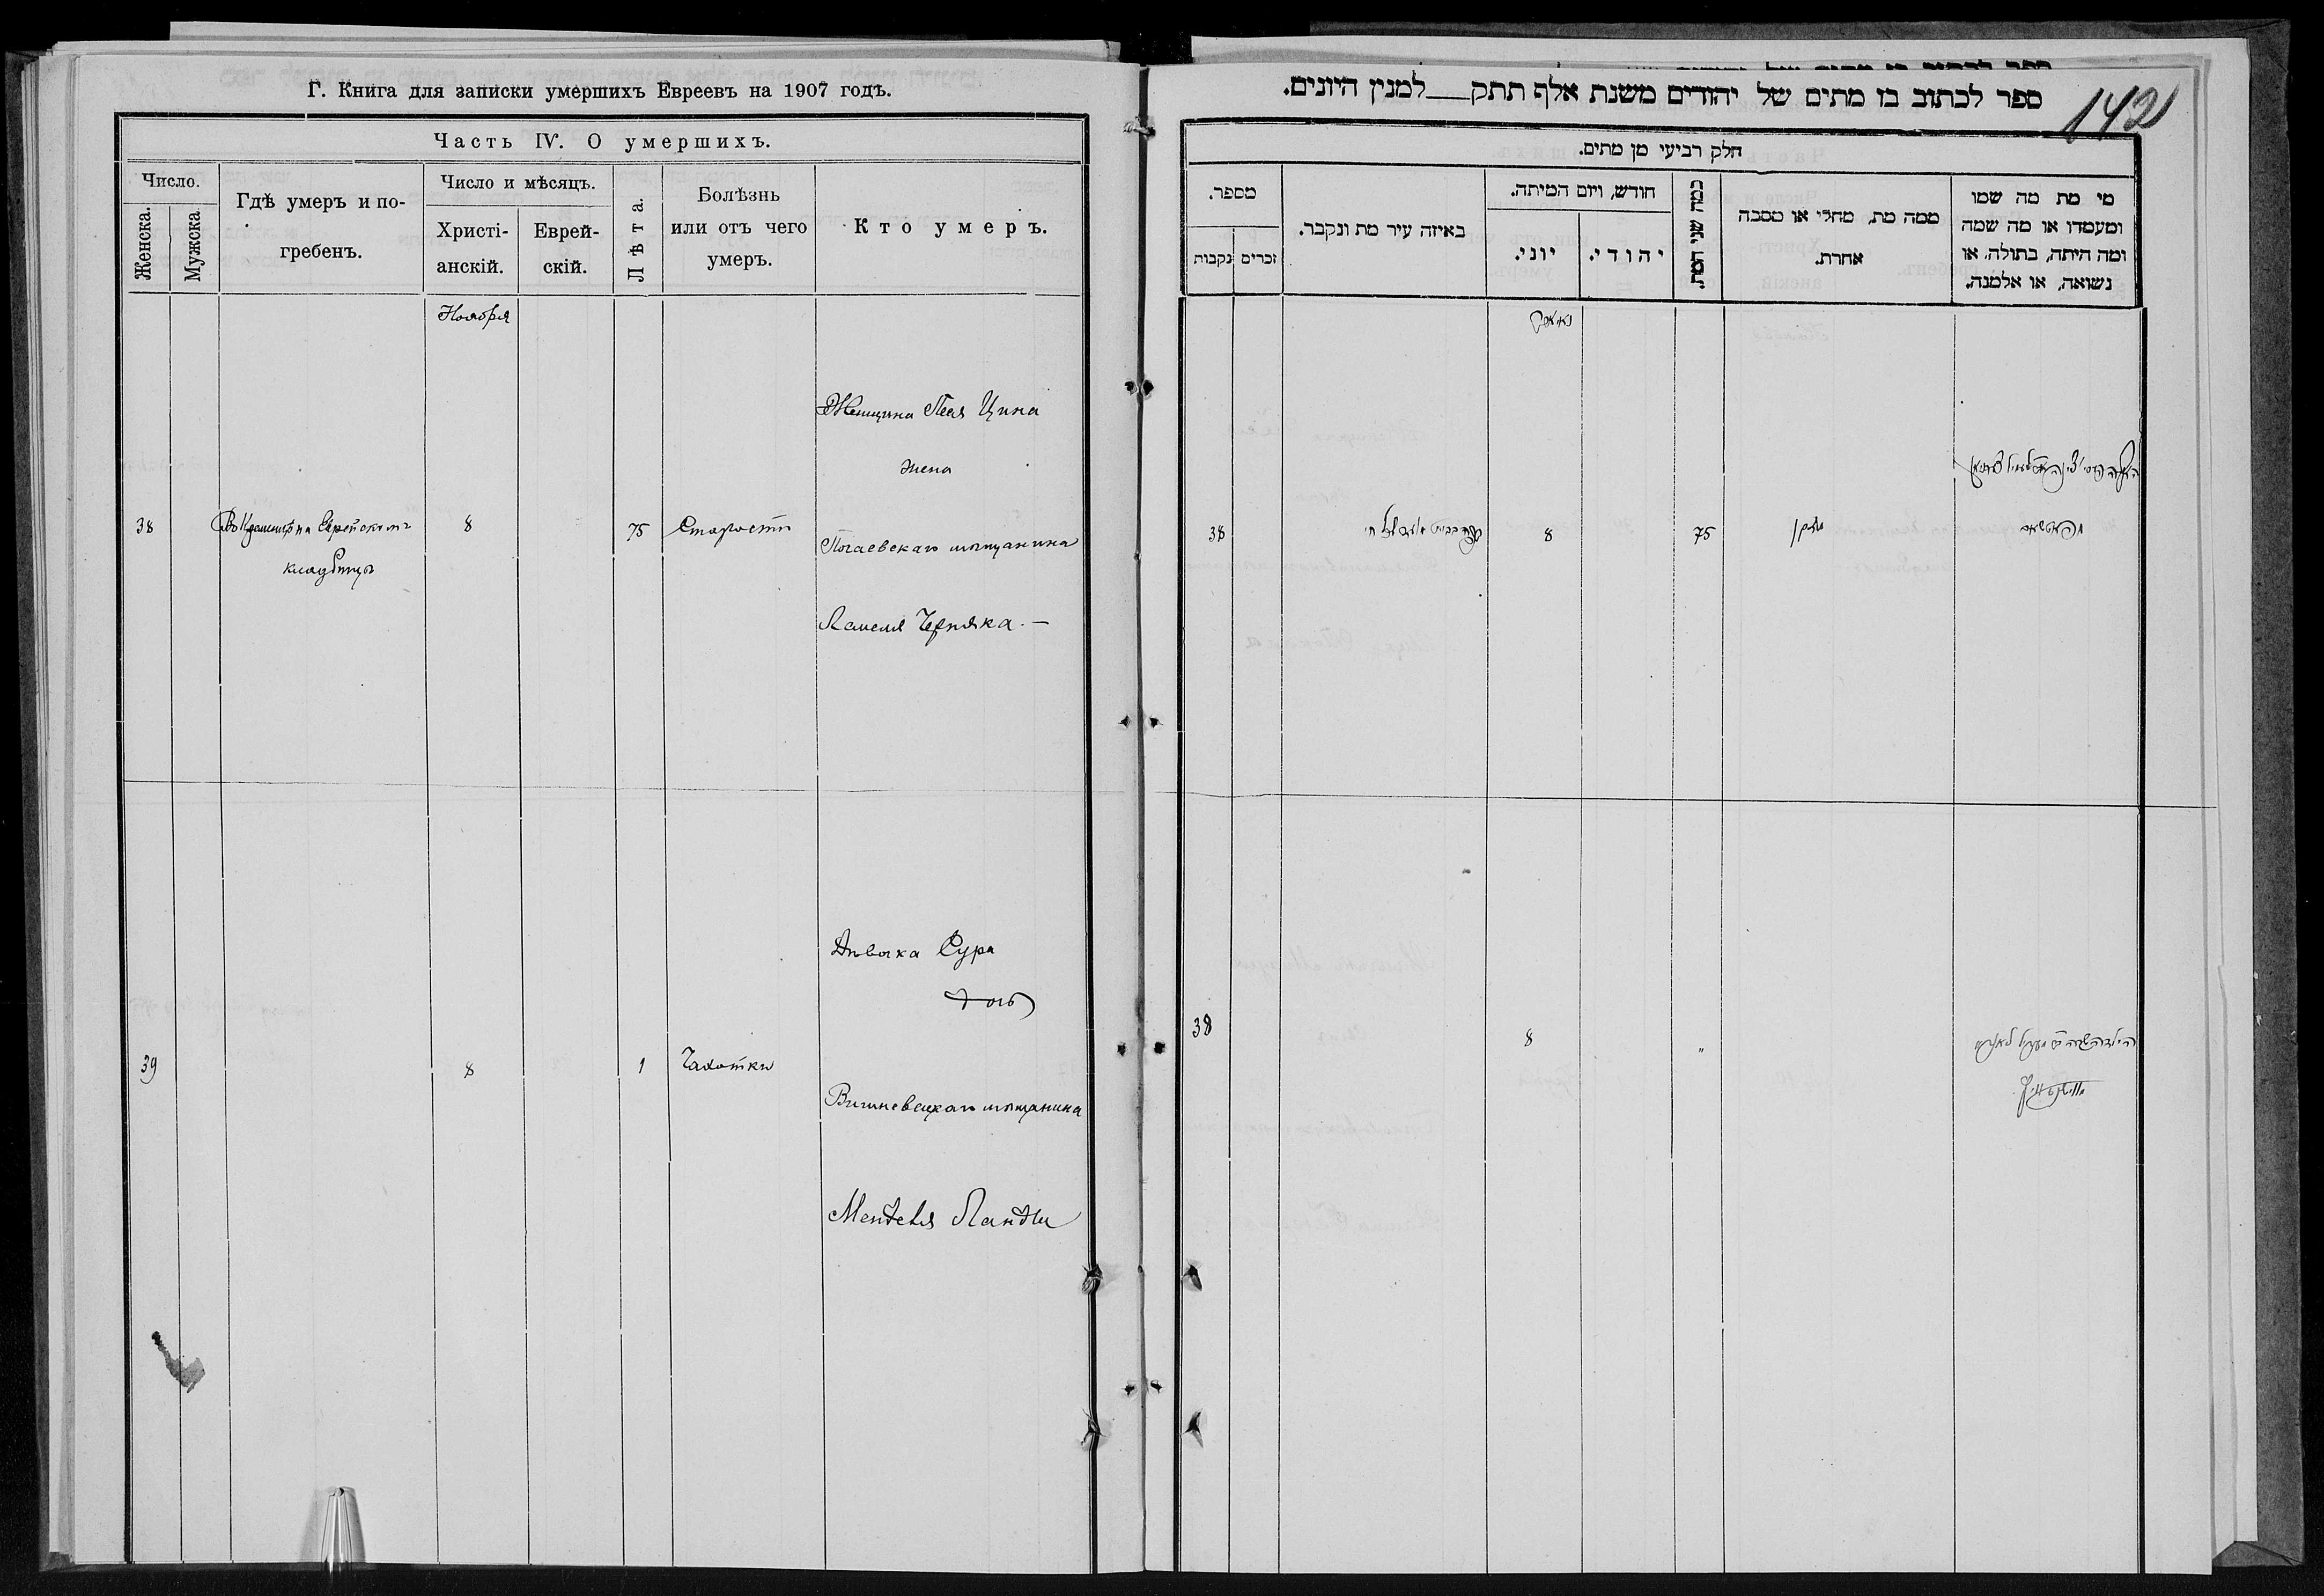 Г. Книга для записки умершихъ Евреевъ на 1907 годъ.
Часть IV. О умершихъ.
Число.
Женска.
Мужска.
Гдѣ умеръ и по-
гребенъ.
Число и мѣсяцъ.
Христі-
анскій.
Еврей-
скій.
Лѣта.
Болѣзнь
или отъ чего
умеръ.
Кто умеръ.
Ноября
Женщина Цина
жена
38
на Еврейскомъ
кладбищѣ
8
75
Старости
Почаевскаго мѣщанина
Черняка. —
Дѣвочка Сура
дочь
39
8
1
Чахотки
Вишневецкаго мѣщанина
Менделя Ланды
ספר לכתוב בו מתים של יהודים משנת אלף תתק___למנין היונים.
142
חלק רביעי מן מתים.
מספר.
נקבות
זכרים
באיזה עיר מת ונקבר.
חודש, ויום המיתה.
יוני.
יהודי.
כמה שני המת.
ממה מת, מחלי או מסבה
אחרת.
מי מת מה שמו
ומעמדו או מה שמה
ומה היתה, בתולה, או
נשואה, או אלמנה.
38
8
75
זקן
38
8
"